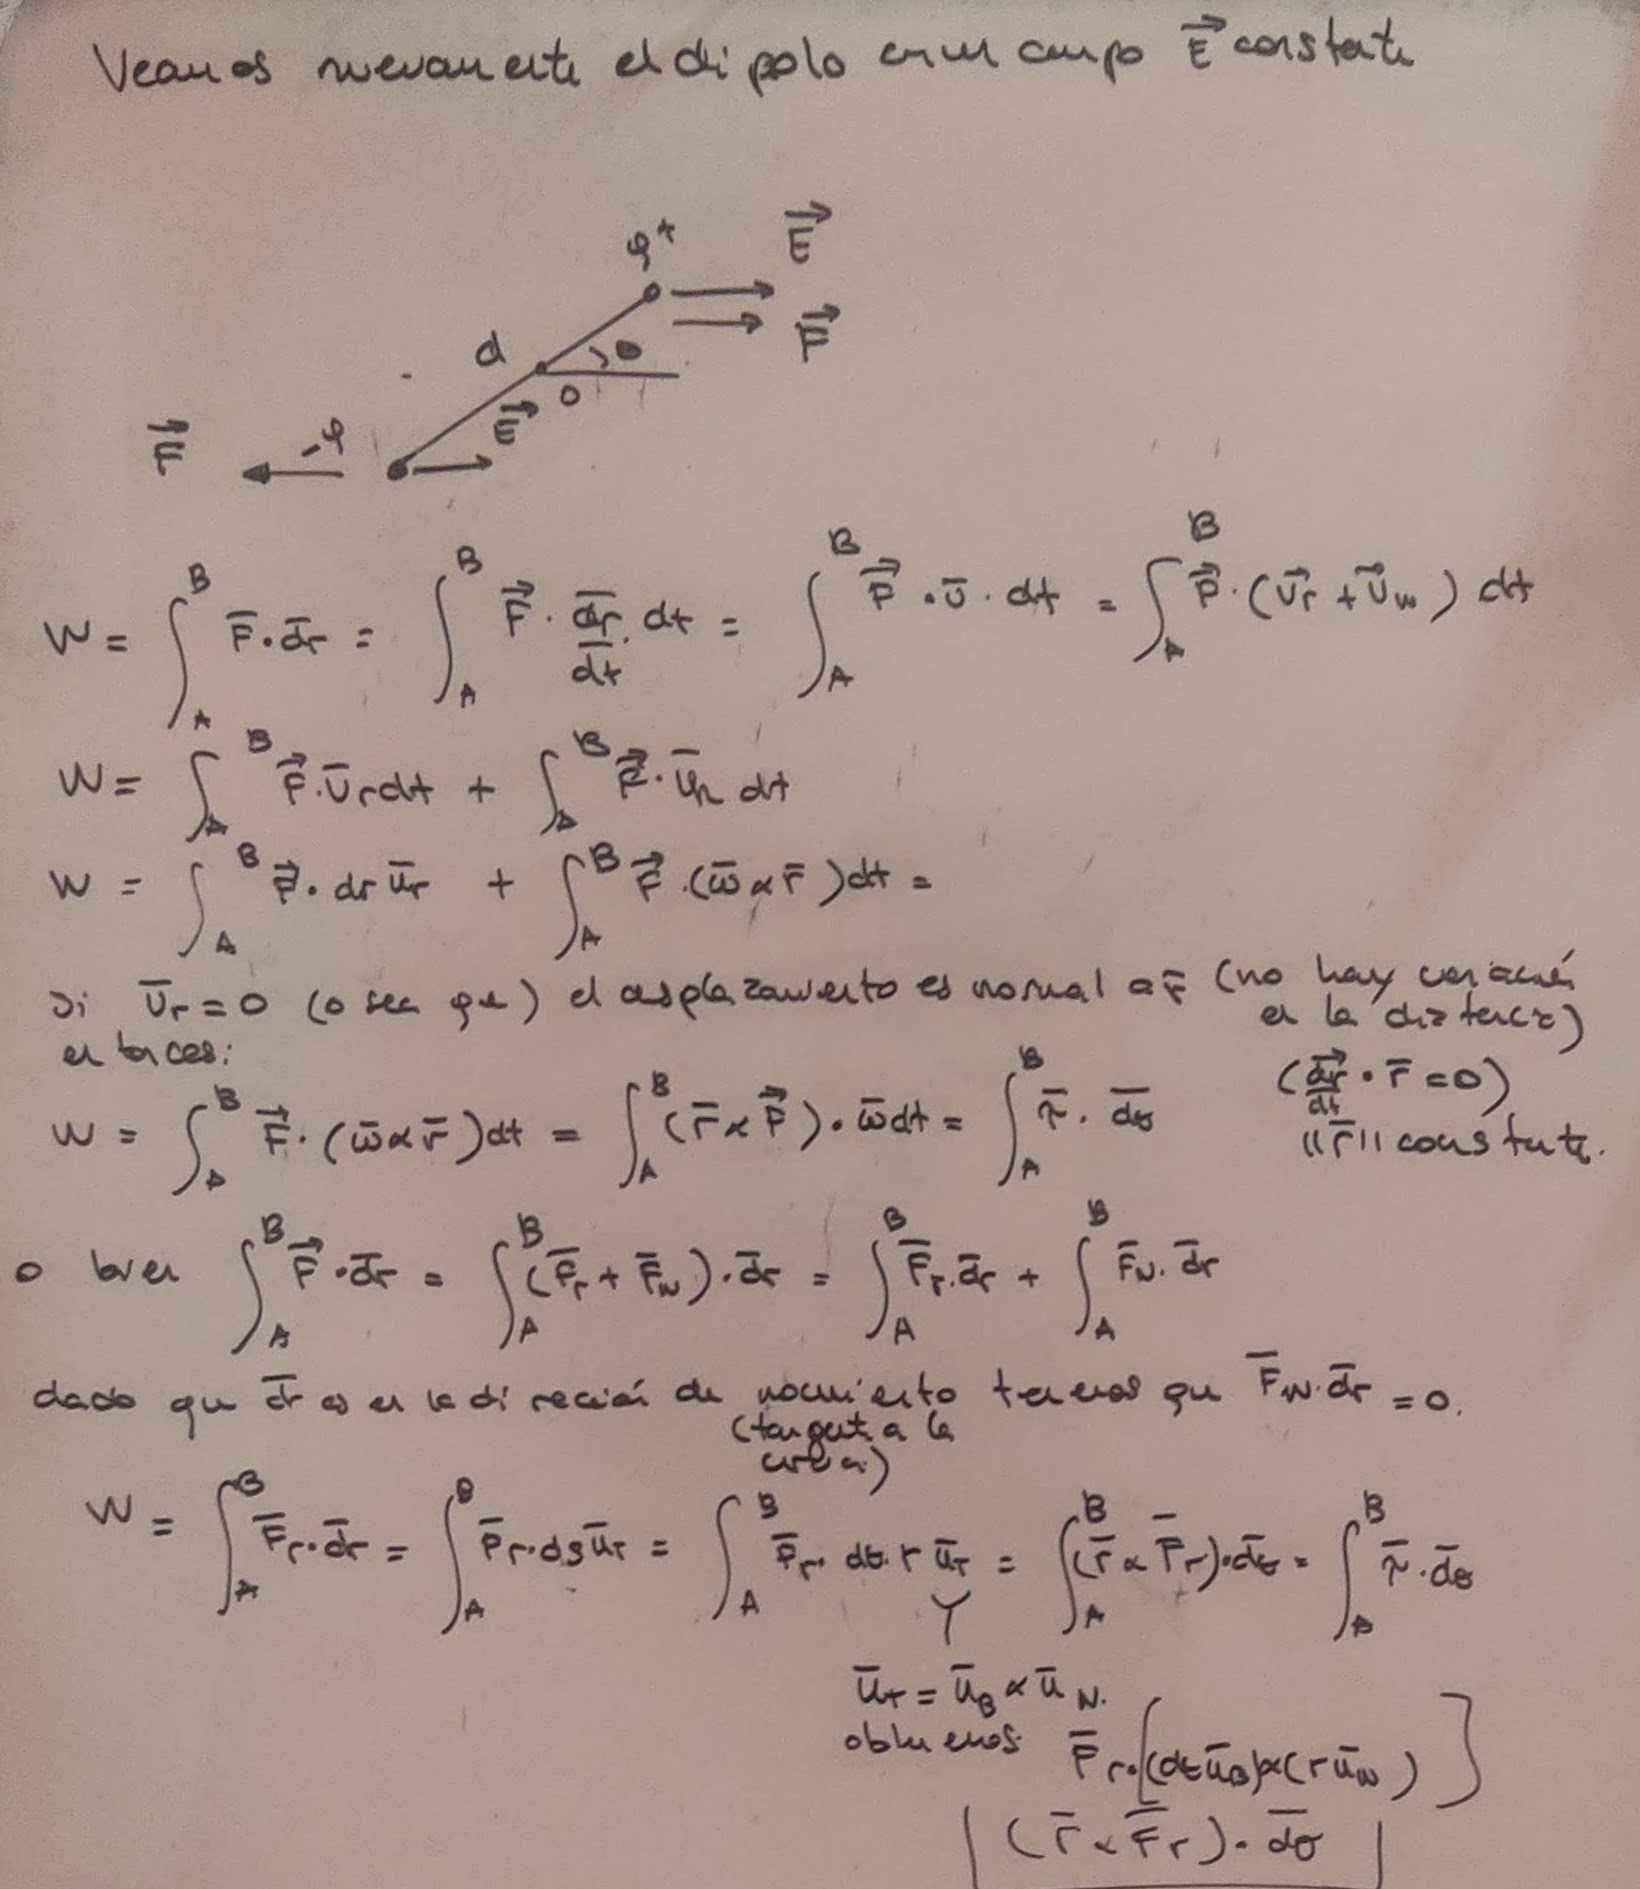 Veamos nuevamente el dipolo en un campo \vec{E} constante
q⁺ \vec{E}
\vec{F}
d θ
O
\vec{F} -q \vec{E}
W = ∫_A^B \bar{F}·\bar{dr} = ∫_A^B \vec{F}·\frac{\bar{dr}}{dt}·dt = ∫_A^B \vec{F}·\bar{v}·dt = ∫_A^B \vec{F}·(\vec{v}_r + \vec{v}_N) dt
W = ∫_A^B \vec{F}·\bar{v}_r dt + ∫_A^B \vec{F}·\bar{v}_n dt
W = ∫_A^B \vec{F}·dr \bar{u}_r + ∫_A^B \vec{F}·(\bar{ω} × \bar{r}) dt =
Si \bar{v}_r = 0 (o sea que) el desplazamiento es normal a \bar{r} (no hay variación
en la distancia)
entonces:
(\frac{\vec{dr}}{dt}·\bar{r} = 0)
W = ∫_A^B \vec{F}·(\bar{ω} × \bar{r}) dt = ∫_A^B (\bar{r} × \vec{F})·\bar{ω} dt = ∫_A^B \bar{τ}·\bar{dθ}
||\bar{r}|| constante.
o bien ∫_A^B \vec{F}·\bar{dr} = ∫_A^B (\bar{F}_T + \bar{F}_N)·\bar{dr} = ∫_A^B \bar{F}_T·\bar{dr} + ∫_A^B \bar{F}_N·\bar{dr}
dado que \bar{dr} es en la dirección de movimiento tenemos que \bar{F}_N·\bar{dr} = 0.
(tangente a la
curva)
W = ∫_A^B \bar{F}_T·\bar{dr} = ∫_A^B \bar{F}_T·ds \bar{u}_T = ∫_A^B \bar{F}_T·dθ·r \bar{u}_T = ∫_A^B (\bar{r} × \bar{F}_T)·\bar{dθ} = ∫_A^B \bar{τ}·\bar{dθ}
\bar{u}_T = \bar{u}_B × \bar{u}_N.
obtenemos \bar{F}_T·[(dθ \bar{u}_B) × (r \bar{u}_N)]
(\bar{r} × \bar{F}_T)·\bar{dθ}